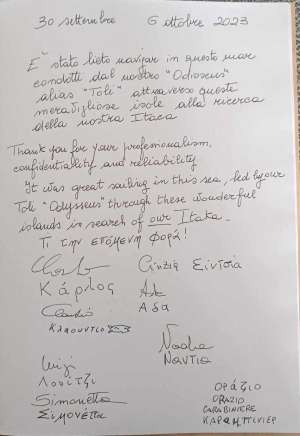 30 settembre 6 ottobre 2023
E' stato lieto navigar in questo mar
condotti dal nostro "Odisseus"
alias "Toli" attraverso queste
meravigliose isole alla ricerca
della nostra Itaca
Thank you for your professionalism,
confidentiality and reliability
It was great sailing in this sea, led by our
Toli "Odysseus" through these wonderful
islands in search of our Itaka.
Τι την επόμενη φορά!
Carlo Cinzia Σίντσια
Κάρλος
Claudio Ada
Κλαουντιο Αδα
Nadia
Luigi Ναντια
Λουίτζι
Simonetta
Σιμονέττα
οράζιο
ORAZIO
CARABINIERE
ΚΑΡΑΜΠΙΝΙΕΡ